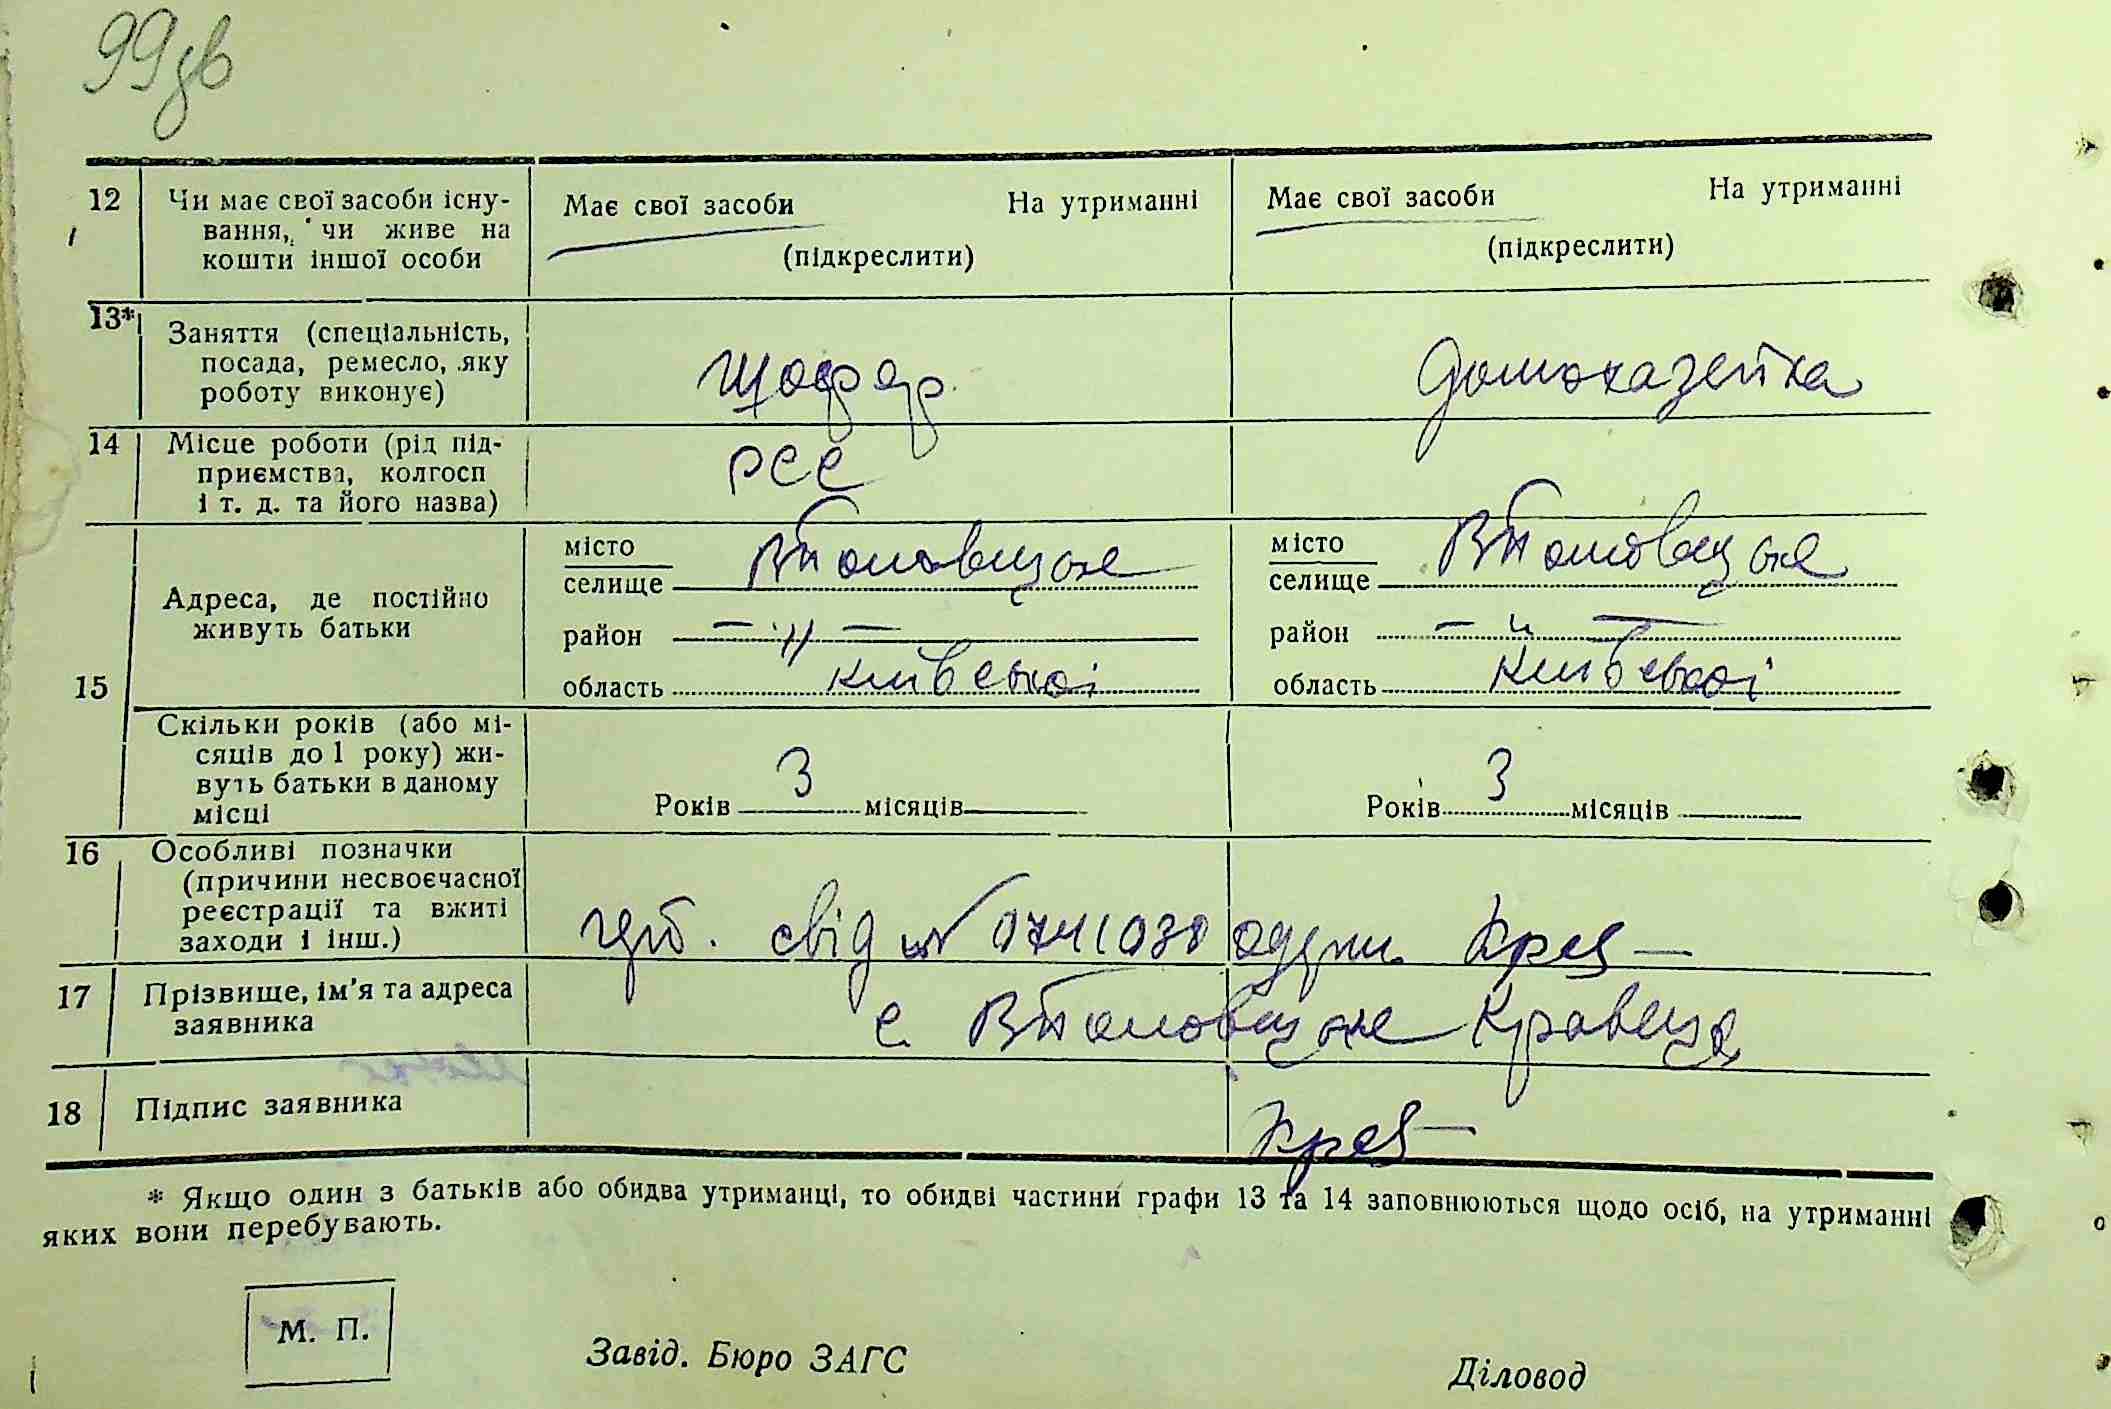 99зв
12 Чи має свої засоби існу- Має свої засоби На утриманні Має свої засоби На утриманні
вання, чи живе на (підкреслити) (підкреслити)
кошти іншої особи
13* Заняття (спеціальність,
посада, ремесло, яку Шофер Домохазейка
роботу виконує)
14 Місце роботи (рід під- РСС
приємства, колгосп
і т. д. та його назва)
15 Адреса, де постійно
живуть батьки
місто
селище
район — „ —
область Київської
місто
селище
район — „ —
область Київської
Скільки років (або мі-
сяців до 1 року) жи-
вуть батьки в даному
місці
Років 3 місяців
Років 3 місяців
16 Особливі позначки
(причини несвоєчасної
реєстрації та вжиті
заходи і інш.) свід № одерж.
17 Прізвище, ім'я та адреса
заявника с. Кравець
18 Підпис заявника
* Якщо один з батьків або обидва утриманці, то обидві частини графи 13 та 14 заповнюються щодо осіб, на утриманні
яких вони перебувають.
М. П.
Завід. Бюро ЗАГС Діловод